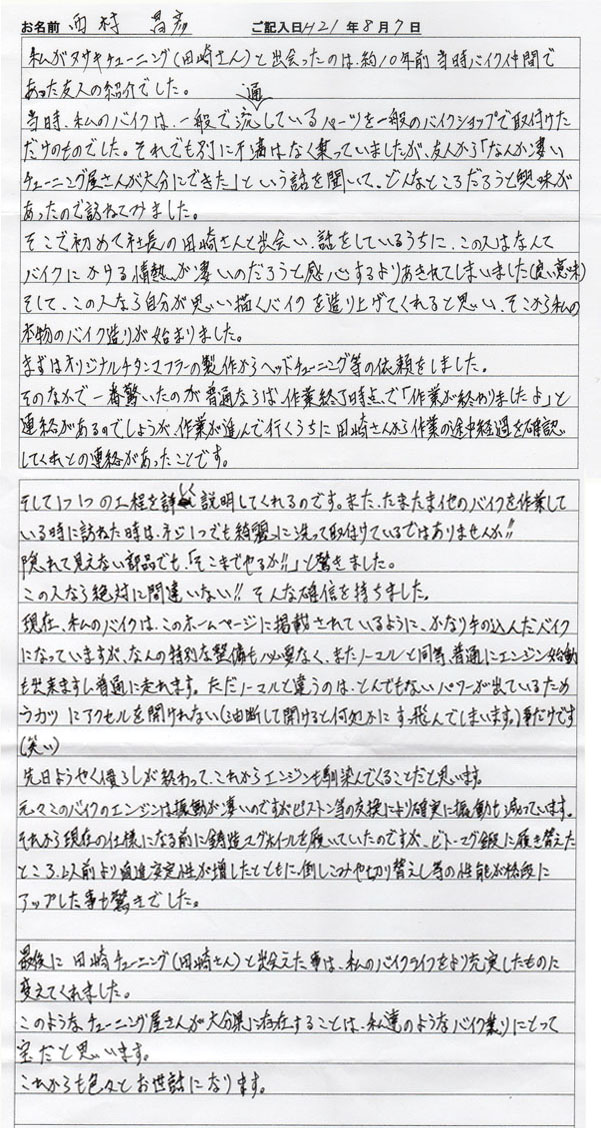 お名前 西村 昌彦 ご記入日 H21年8月7日
私がタサキチューニング(田崎さん)と出会ったのは、約10年前当時バイク仲間で
あった友人の紹介でした。
当時、私のバイクは、一般で流通しているパーツを一般のバイクショップで取付けた
だけのものでした。それでも別に不満はなく乗っていましたが、友人から「なんか凄い
チューニング屋さんが大分にできた」という話を聞いて、どんなところだろうと興味が
あったので訪ねてみました。
そこで初めて社長の田崎さんと出会い、話をしているうちに、この人はなんて
バイクにかける情熱が凄いのだろうと感心するよりあきれてしまいました(良い意味)
そして、この人なら自分が思い描くバイクを造り上げてくれると思い、そこから私の
本物のバイク造りが始まりました。
まずはオリジナルチタンマフラーの製作からヘッドチューニング等の依頼をしました。
そのなかで一番驚いたのが普通ならば、作業終了時点で「作業が終わりましたよ」と
連絡があるのでしょうが、作業が進んで行くうちに田崎さんから作業の途中経過を確認
してくれとの連絡があったことです。
そして1つ1つの工程を詳しく説明してくれるのです。また、たまたま他のバイクを作業して
いる時に訪ねた時は、ネジ1つでも綺麗に洗って取付けているではありませんか!!
隠れて見えない部品でも、「そこまでやるか!!」と驚きました。
この人なら絶対に間違いない!! そんな確信を持ちました。
現在、私のバイクは、このホームページに掲載されているように、かなり手の込んだバイク
になっていますが、なんの特別な整備も必要なく、またノーマルと同等、普通にエンジン始動
も出来ますし普通に走れます。ただノーマルと違うのは、とんでもないパワーが出ているため
ラカツにアクセルを開けれない(油断して開けると何処かにすっ飛んでしまいます。)事だけです
(笑い)
先日ようやく慣らしが終わって、これからエンジンも馴染んでくることだと思います。
元々このバイクのエンジンは振動が凄いのですがピストン等の交換により確実に振動も減っています。
それから現在の仕様になる前に鋳造マグホイールを履いていたのですが、ビトーマグ鍛に履き替えた
ところ、以前より直進安定性が増したとともに、倒しこみや切り替えし等の性能が格段に
アップした事も驚きでした。
最後に田崎チューニング(田崎さん)と出会えた事は、私のバイクライフをより充実したものに
変えてくれました。
このようなチューニング屋さんが大分県に存在することは、私達のようなバイク乗りにとって
宝だと思います。
これからも色々とお世話になります。